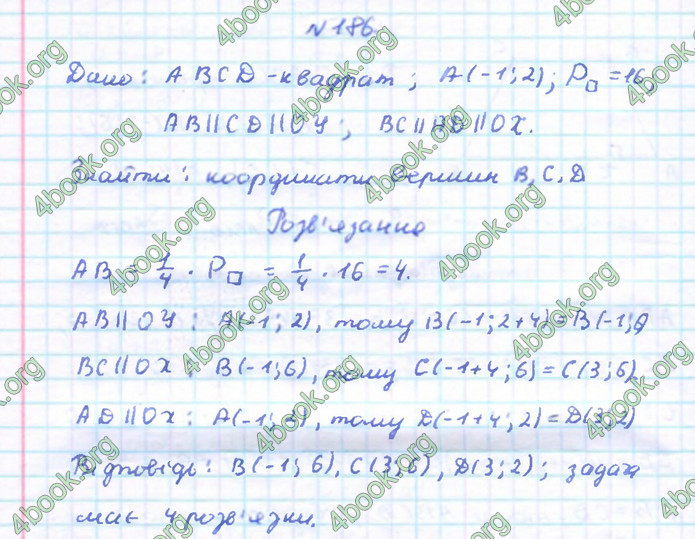 № 186
Дано: ABCD - квадрат; A(-1; 2); P□ = 16,
AB || CD || OY; BC || AD || OX.
Знайти: координати вершин B, C, D
Розв'язання
AB = 1/4 · P□ = 1/4 · 16 = 4.
AB || OY: A(-1; 2), тому B(-1; 2+4) = B(-1; 6)
BC || OX: B(-1; 6), тому C(-1+4; 6) = C(3; 6).
AD || OX: A(-1; 2), тому D(-1+4; 2) = D(3; 2)
Відповідь: B(-1; 6), C(3; 6), D(3; 2); задача
має 4 розв'язки.
4book.org